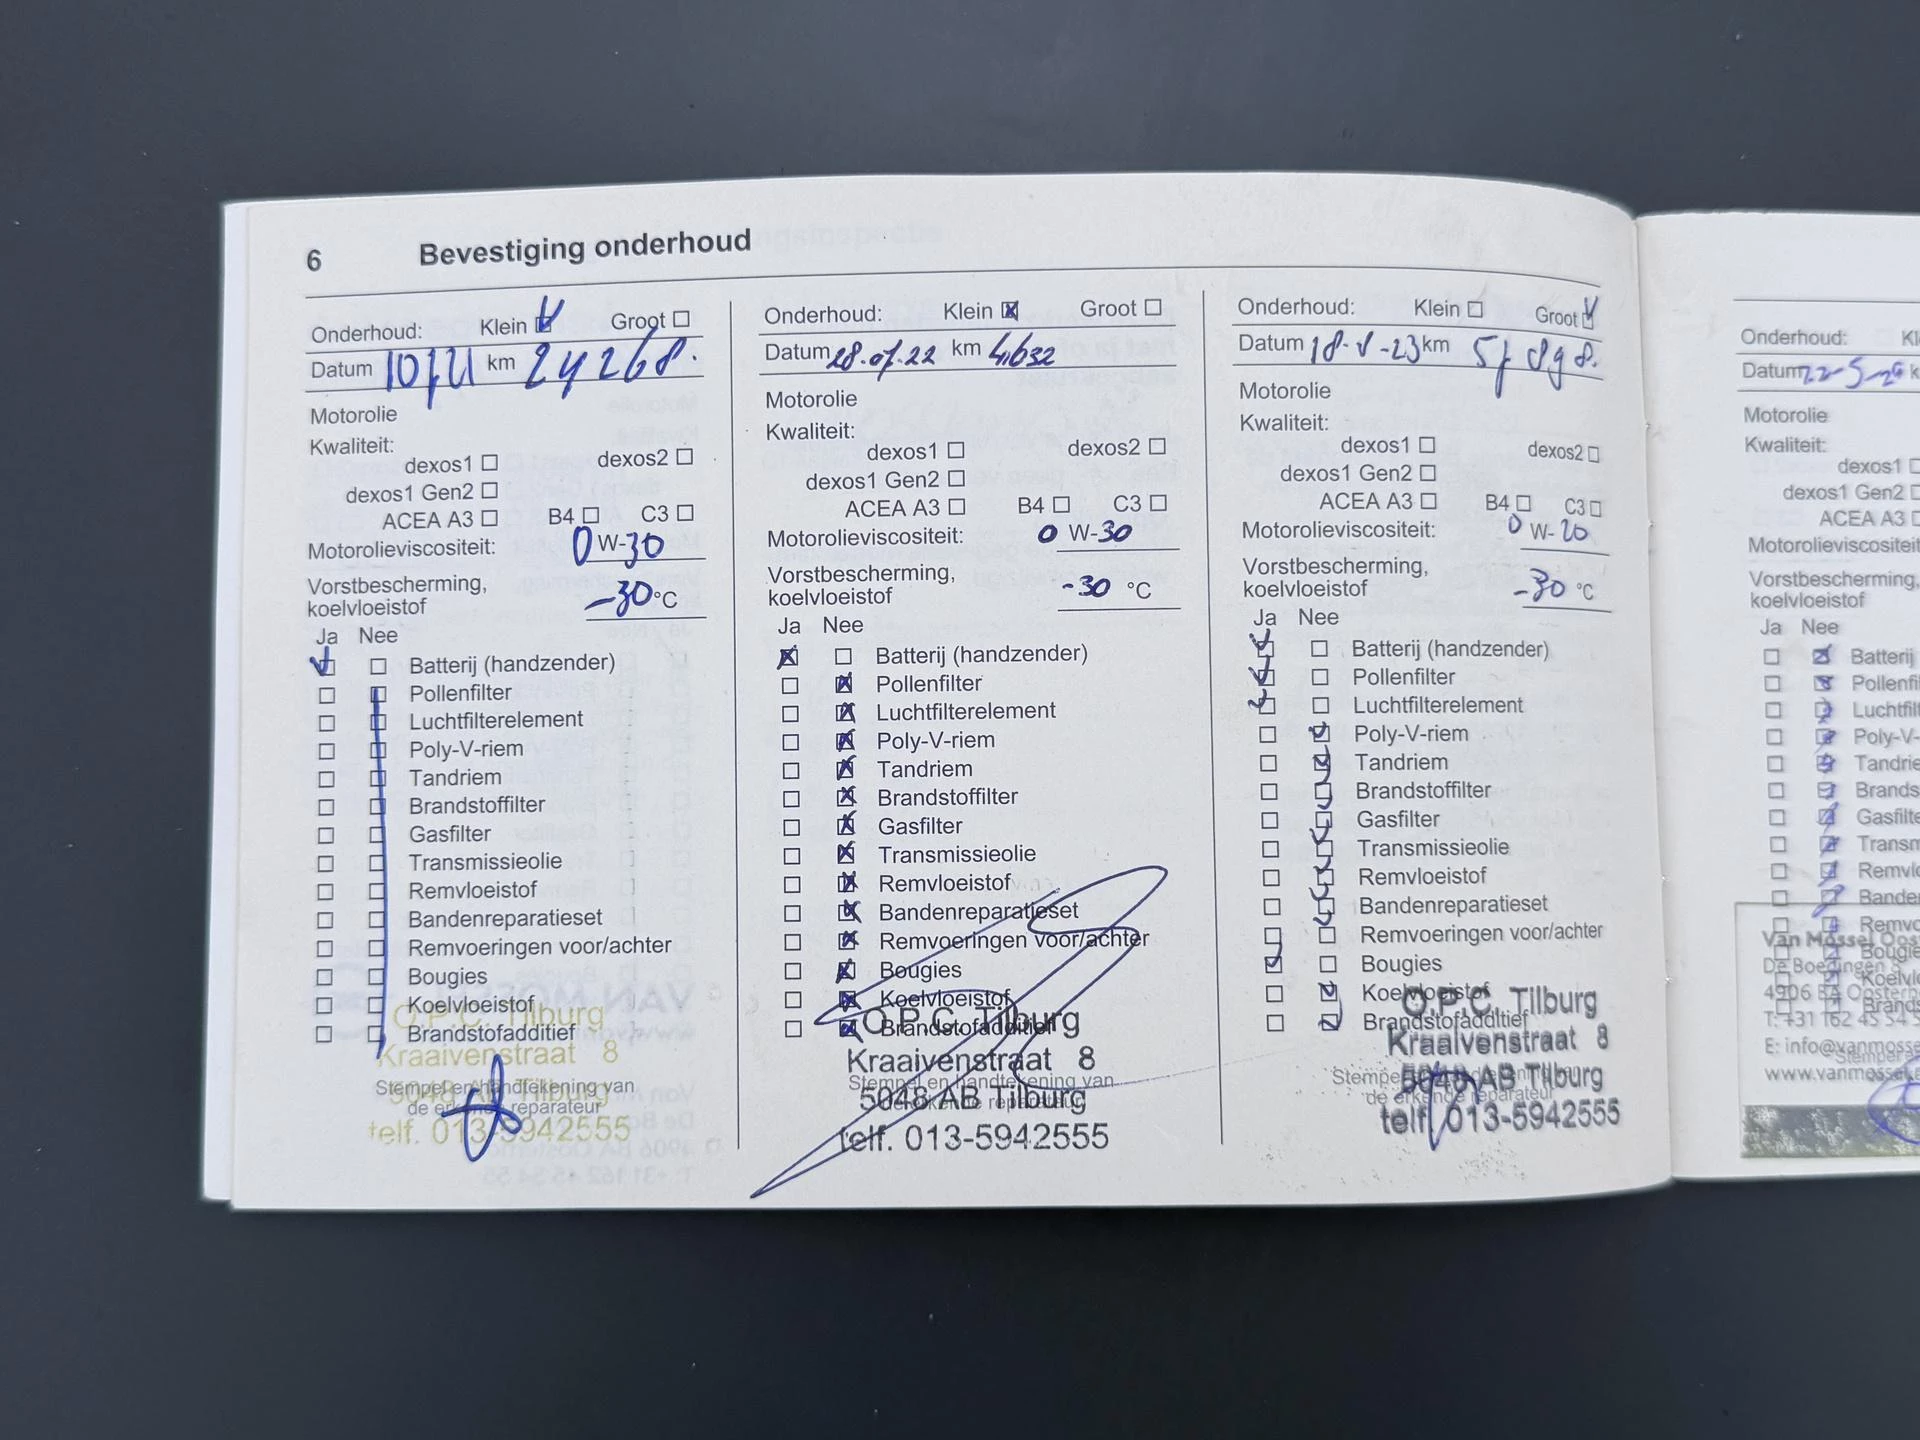 6 Bevestiging onderhoud
Onderhoud: Klein Groot
Datum km 24268.
Motorolie
Kwaliteit:
dexos1 dexos2
dexos1 Gen2
ACEA A3 B4 C3
Motorolieviscositeit: 0 W-30
Vorstbescherming,
koelvloeistof -30 °C
Ja Nee
Batterij (handzender)
Pollenfilter
Luchtfilterelement
Poly-V-riem
Tandriem
Brandstoffilter
Gasfilter
Transmissieolie
Remvloeistof
Bandenreparatieset
Remvoeringen voor/achter
Bougies
Koelvloeistof
Brandstofadditief
O.P.C. Tilburg
Kraaivenstraat 8
5048 AB Tilburg
telf. 013-5942555
Stempel en handtekening van
de erkende reparateur
Onderhoud: Klein Groot
Datum 28.07.22 km 41632
Motorolie
Kwaliteit:
dexos1 dexos2
dexos1 Gen2
ACEA A3 B4 C3
Motorolieviscositeit: 0 W-30
Vorstbescherming,
koelvloeistof -30 °C
Ja Nee
Batterij (handzender)
Pollenfilter
Luchtfilterelement
Poly-V-riem
Tandriem
Brandstoffilter
Gasfilter
Transmissieolie
Remvloeistof
Bandenreparatieset
Remvoeringen voor/achter
Bougies
Koelvloeistof
Brandstofadditief
O.P.C. Tilburg
Kraaivenstraat 8
5048 AB Tilburg
telf. 013-5942555
Stempel en handtekening van
de erkende reparateur
Onderhoud: Klein Groot
Datum km
Motorolie
Kwaliteit:
dexos1 dexos2
dexos1 Gen2
ACEA A3 B4 C3
Motorolieviscositeit: 0 W-20
Vorstbescherming,
koelvloeistof -30 °C
Ja Nee
Batterij (handzender)
Pollenfilter
Luchtfilterelement
Poly-V-riem
Tandriem
Brandstoffilter
Gasfilter
Transmissieolie
Remvloeistof
Bandenreparatieset
Remvoeringen voor/achter
Bougies
Koelvloeistof
Brandstofadditief
O.P.C. Tilburg
Kraaivenstraat 8
5048 AB Tilburg
telf. 013-5942555
Stempel en handtekening van
de erkende reparateur
Onderhoud: Kl
Datum k
Motorolie
Kwaliteit:
dexos1
dexos1 Gen2
ACEA A3
Motorolieviscositeit
Vorstbescherming,
koelvloeistof
Ja Nee
Batterij
Pollenfil
Luchtfilt
Poly-V-
Tandrie
Brands
Gasfilte
Transm
Remvlo
Banden
Remvo
Bougie
Koelvlo
Brands
Van Mossel Oos
De Boedingen 8
4906 BA Oosterh
T: +31 162 45 54 5
E: info@vanmosse
www.vanmossel.
Stempel e